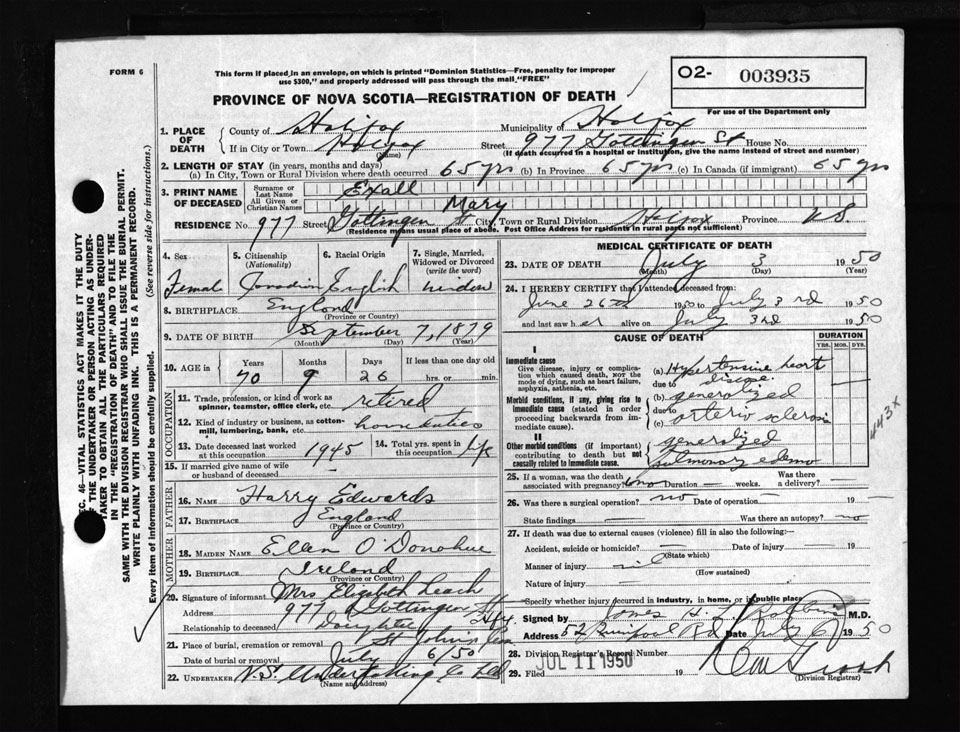 FORM 6
This form if placed in an envelope, on which is printed "Dominion Statistics—Free, penalty for improper
use $300," and properly addressed will pass through the mail "FREE"
O2- 003935
PROVINCE OF NOVA SCOTIA—REGISTRATION OF DEATH
For use of the Department only
1. PLACE OF DEATH
County of Halifax Municipality of Halifax
If in City or Town Halifax Street 977 Gottingen St House No.
(Name) (If death occurred in a hospital or institution, give the name instead of street and number)
2. LENGTH OF STAY (in years, months and days)
(a) In City, Town or Rural Division where death occurred 65 yrs (b) In Province 65 yrs (c) In Canada (if immigrant) 65 yrs
3. PRINT NAME OF DECEASED
Surname or Last Name Exall
All Given or Christian Names Mary
RESIDENCE No. 977 Street Gottingen St City, Town or Rural Division Halifax Province NS
(Residence means usual place of abode. Post Office Address for residents in rural parts not sufficient)
4. Sex Female
5. Citizenship (Nationality) Canadian
6. Racial Origin English
7. Single, Married, Widowed or Divorced (write the word) widow
8. BIRTHPLACE England
(Province or Country)
9. DATE OF BIRTH September 7, 1879
(Month) (Day) (Year)
10. AGE in Years Months Days If less than one day old
70 9 26 hrs. or min.
OCCUPATION
11. Trade, profession, or kind of work as spinner, teamster, office clerk, etc. retired
12. Kind of industry or business, as cotton-mill, lumbering, bank, etc. home duties
13. Date deceased last worked at this occupation 1945
14. Total yrs. spent in this occupation life
15. If married give name of wife or husband of deceased
FATHER
16. NAME Harry Edwards
17. BIRTHPLACE England
(Province or Country)
MOTHER
18. MAIDEN NAME Ellen O'Donohue
19. BIRTHPLACE Ireland
(Province or Country)
20. Signature of informant Mrs Elizabeth Leach
Address 977 Gottingen St Hfx.
Relationship to deceased Daughter
21. Place of burial, cremation or removal St John's
Date of burial or removal July 6/50
22. UNDERTAKER N.S. Undertaking Co Ltd
(Name and address)
MEDICAL CERTIFICATE OF DEATH
23. DATE OF DEATH July 3 1950
(Month) (Day) (Year)
24. I HEREBY CERTIFY that I attended deceased from:
June 26th 1950 to July 3rd 1950
and last saw her alive on July 3rd 1950
CAUSE OF DEATH
DURATION
YRS. MOS. DYS.
I
Immediate cause
Give disease, injury or complication which caused death, NOT the mode of dying, such as heart failure, asphyxia, asthenia, etc.
(a) Hypertensive heart
due to disease
Morbid conditions, if any, giving rise to immediate cause (stated in order proceeding backwards from immediate cause).
(b) generalized
due to
(c) arterio sclerosis
II
Other morbid conditions (if important) contributing to death but not causally related to immediate cause.
generalized
pulmonary edema
443X
25. If a woman, was the death associated with pregnancy? no Duration — weeks. Was there a delivery? —
26. Was there a surgical operation? no Date of operation — 19
State findings — Was there an autopsy? no
27. If death was due to external causes (violence) fill in also the following:
Accident, suicide or homicide? — Date of injury — 19
(State which)
Manner of injury nil
(How sustained)
Nature of injury —
Specify whether injury occurred in industry, in home, or in public place
Signed by James H. M.D.
Address 52 Quinpool Rd Date July 6 1950
28. Division Registrar's Record Number
29. Filed JUL 11 1950 19
(Division Registrar)
SEC. 46—VITAL STATISTICS ACT MAKES IT THE DUTY
OF THE UNDERTAKER OR PERSON ACTING AS UNDER-
TAKER TO OBTAIN ALL THE PARTICULARS REQUIRED
IN THE "REGISTRATION OF DEATH" AND TO FILE THE
SAME WITH THE DIVISION REGISTRAR WHO SHALL ISSUE THE BURIAL PERMIT.
WRITE PLAINLY WITH UNFADING INK. THIS IS A PERMANENT RECORD.
Every item of information should be carefully supplied. (See reverse side for instructions.)